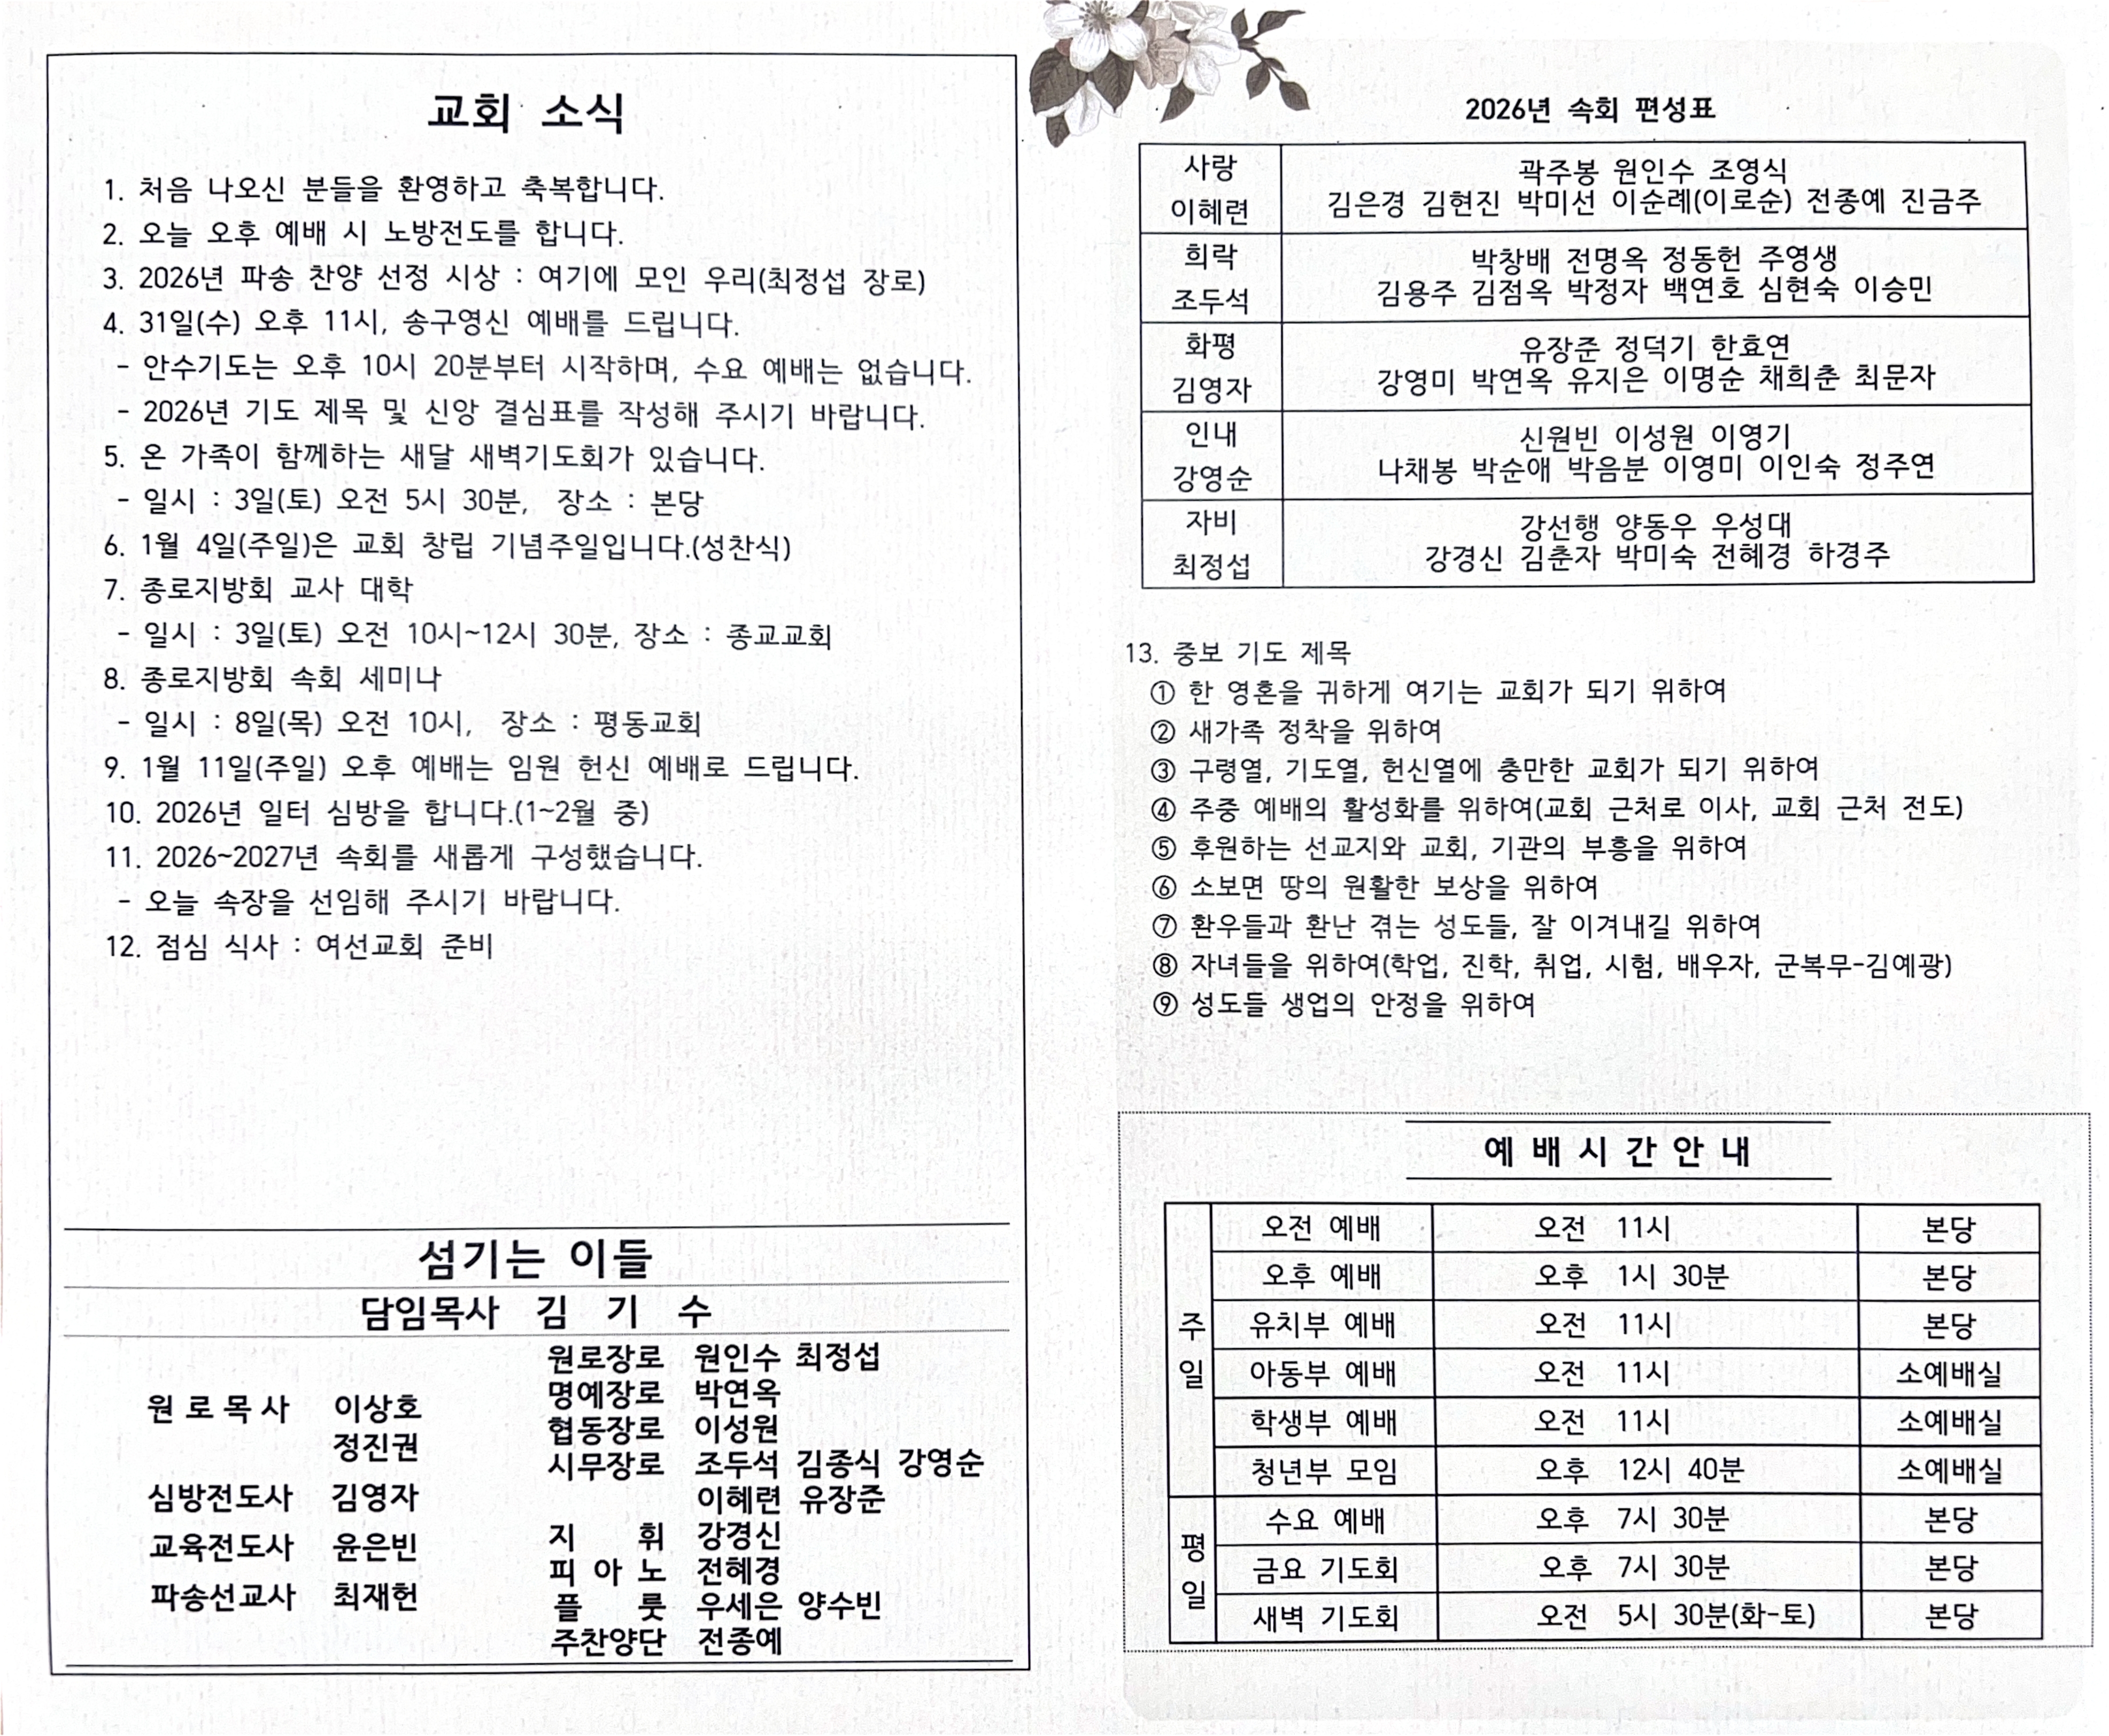 교회 소식
1. 처음 나오신 분들을 환영하고 축복합니다.
2. 오늘 오후 예배 시 노방전도를 합니다.
3. 2026년 파송 찬양 선정 시상 : 여기에 모인 우리(최정섭 장로)
4. 31일(수) 오후 11시, 송구영신 예배를 드립니다.
- 안수기도는 오후 10시 20분부터 시작하며, 수요 예배는 없습니다.
- 2026년 기도 제목 및 신앙 결심표를 작성해 주시기 바랍니다.
5. 온 가족이 함께하는 새달 새벽기도회가 있습니다.
- 일시 : 3일(토) 오전 5시 30분, 장소 : 본당
6. 1월 4일(주일)은 교회 창립 기념주일입니다.(성찬식)
7. 종로지방회 교사 대학
- 일시 : 3일(토) 오전 10시~12시 30분, 장소 : 종교교회
8. 종로지방회 속회 세미나
- 일시 : 8일(목) 오전 10시, 장소 : 평동교회
9. 1월 11일(주일) 오후 예배는 임원 헌신 예배로 드립니다.
10. 2026년 일터 심방을 합니다.(1~2월 중)
11. 2026~2027년 속회를 새롭게 구성했습니다.
- 오늘 속장을 선임해 주시기 바랍니다.
12. 점심 식사 : 여선교회 준비
섬기는 이들
담임목사 김 기 수
원로목사 이상호
정진권
심방전도사 김영자
교육전도사 윤은빈
파송선교사 최재헌
원로장로 원인수 최정섭
명예장로 박연옥
협동장로 이성원
시무장로 조두석 김종식 강영순
이혜련 유장준
지 휘 강경신
피 아 노 전혜경
플 룻 우세은 양수빈
주찬양단 전종예
2026년 속회 편성표
사랑 곽주봉 원인수 조영식
이혜련 김은경 김현진 박미선 이순례(이로순) 전종예 진금주
희락 박창배 전명옥 정동헌 주영생
조두석 김용주 김점옥 박정자 백연호 심현숙 이승민
화평 유장준 정덕기 한효연
김영자 강영미 박연옥 유지은 이명순 채희춘 최문자
인내 신원빈 이성원 이영기
강영순 나채봉 박순애 박음분 이영미 이인숙 정주연
자비 강선행 양동우 우성대
최정섭 강경신 김춘자 박미숙 전혜경 하경주
13. 중보 기도 제목
① 한 영혼을 귀하게 여기는 교회가 되기 위하여
② 새가족 정착을 위하여
③ 구령열, 기도열, 헌신열에 충만한 교회가 되기 위하여
④ 주중 예배의 활성화를 위하여(교회 근처로 이사, 교회 근처 전도)
⑤ 후원하는 선교지와 교회, 기관의 부흥을 위하여
⑥ 소보면 땅의 원활한 보상을 위하여
⑦ 환우들과 환난 겪는 성도들, 잘 이겨내길 위하여
⑧ 자녀들을 위하여(학업, 진학, 취업, 시험, 배우자, 군복무-김예광)
⑨ 성도들 생업의 안정을 위하여
예배시간안내
주일
오전 예배 오전 11시 본당
오후 예배 오후 1시 30분 본당
유치부 예배 오전 11시 본당
아동부 예배 오전 11시 소예배실
학생부 예배 오전 11시 소예배실
청년부 모임 오후 12시 40분 소예배실
평일
수요 예배 오후 7시 30분 본당
금요 기도회 오후 7시 30분 본당
새벽 기도회 오전 5시 30분(화-토) 본당